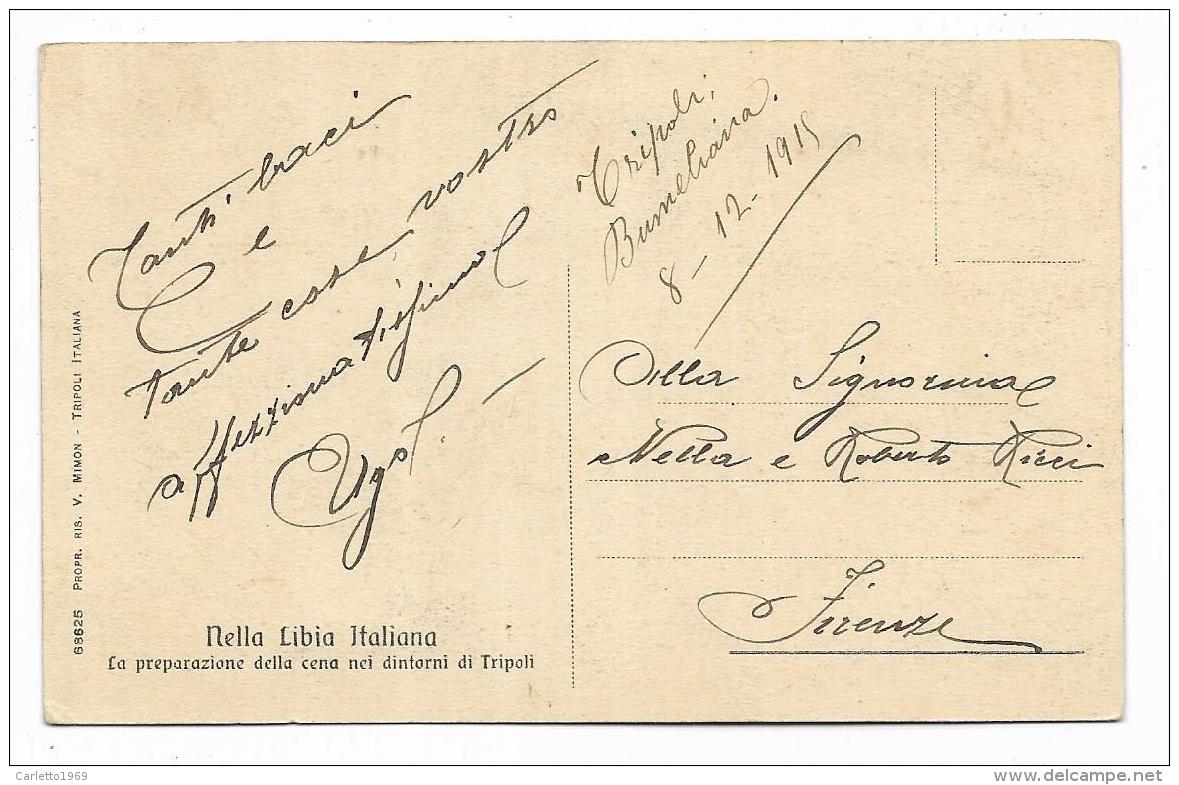 Tanti baci
e
tante cose, vostro
affezzionatissimo
Ugo.
Tripoli,
Bumeliana.
8-12-1915
Alla Signorina
Nella e Roberto Ricci
Firenze
68625 PROPR. RIS. V. MIMON - TRIPOLI ITALIANA
Nella Libia Italiana
La preparazione della cena nei dintorni di Tripoli
Carletto1969
www.delcampe.net